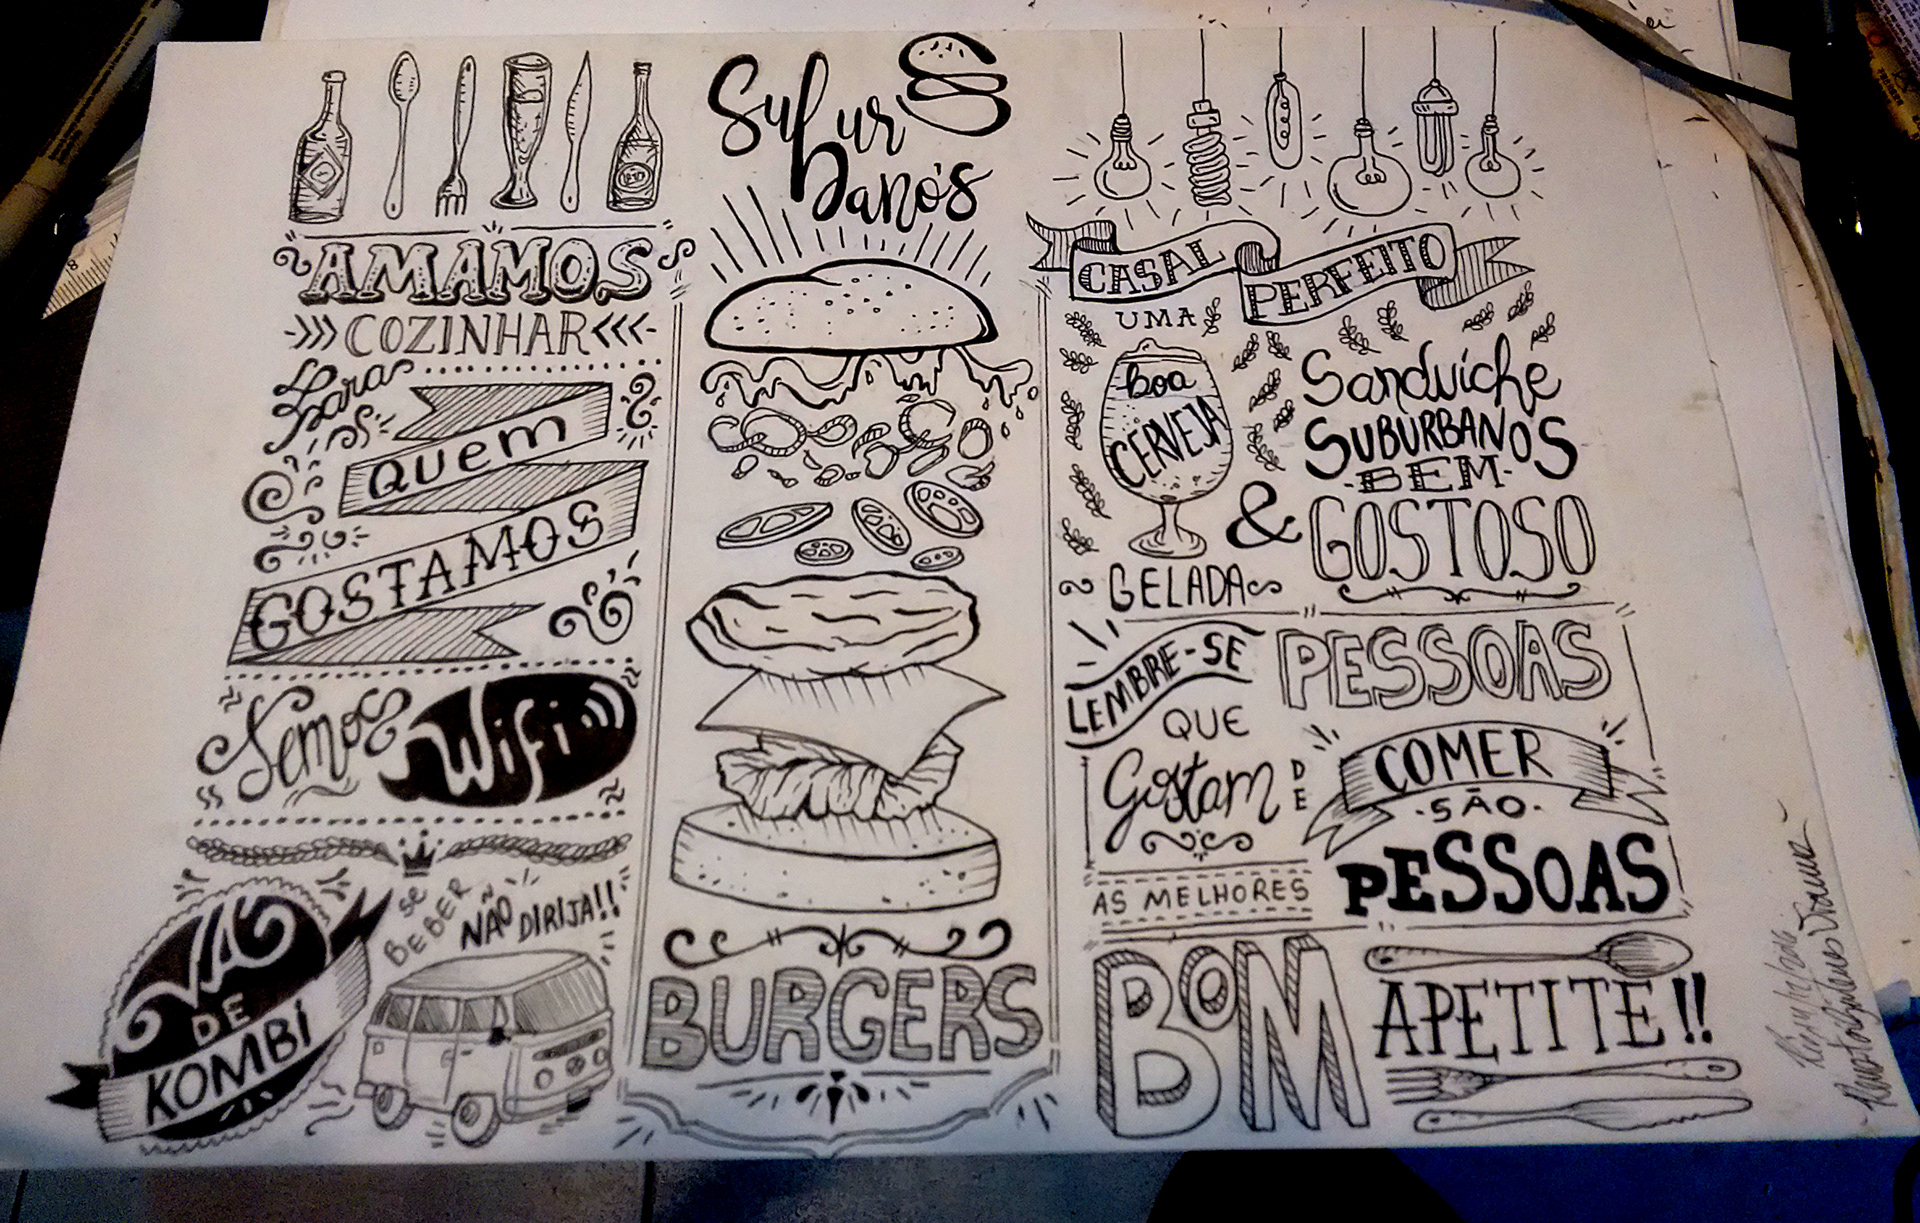 AMAMOS
COZINHAR
Para
QUEM
GOSTAMOS
Temos Wifi
VÁ
DE
KOMBI
SE
BEBER
NÃO DIRIJA!!
Subur
bano's
BURGERS
CASAL PERFEITO
UMA
boa
CERVEJA
GELADA
&
Sandwiche
SUBURBANOS
BEM
GOSTOSO
LEMBRE-SE
QUE
Gostam
DE
PESSOAS
COMER
SÃO
PESSOAS
AS MELHORES
BOM
APETITE!!